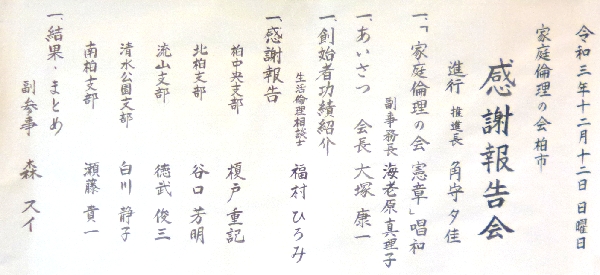 令和三年十二月十二日 日曜日
家庭倫理の会 柏市
感謝報告会
進行 推進長 角守 夕佳
一、「家庭倫理の会 憲章」唱和
副事務長 海老原 真理子
一、あいさつ 会長 大塚 康一
一、創始者功績紹介
生活倫理相談士 福村 ひろみ
一、感謝報告
柏中央支部 榎戸 重記
北柏支部 谷口 芳明
流山支部 徳武 俊三
清水公園支部 白川 静子
南柏支部 瀬藤 貴一
一、結果・まとめ
副参事 森 スイ